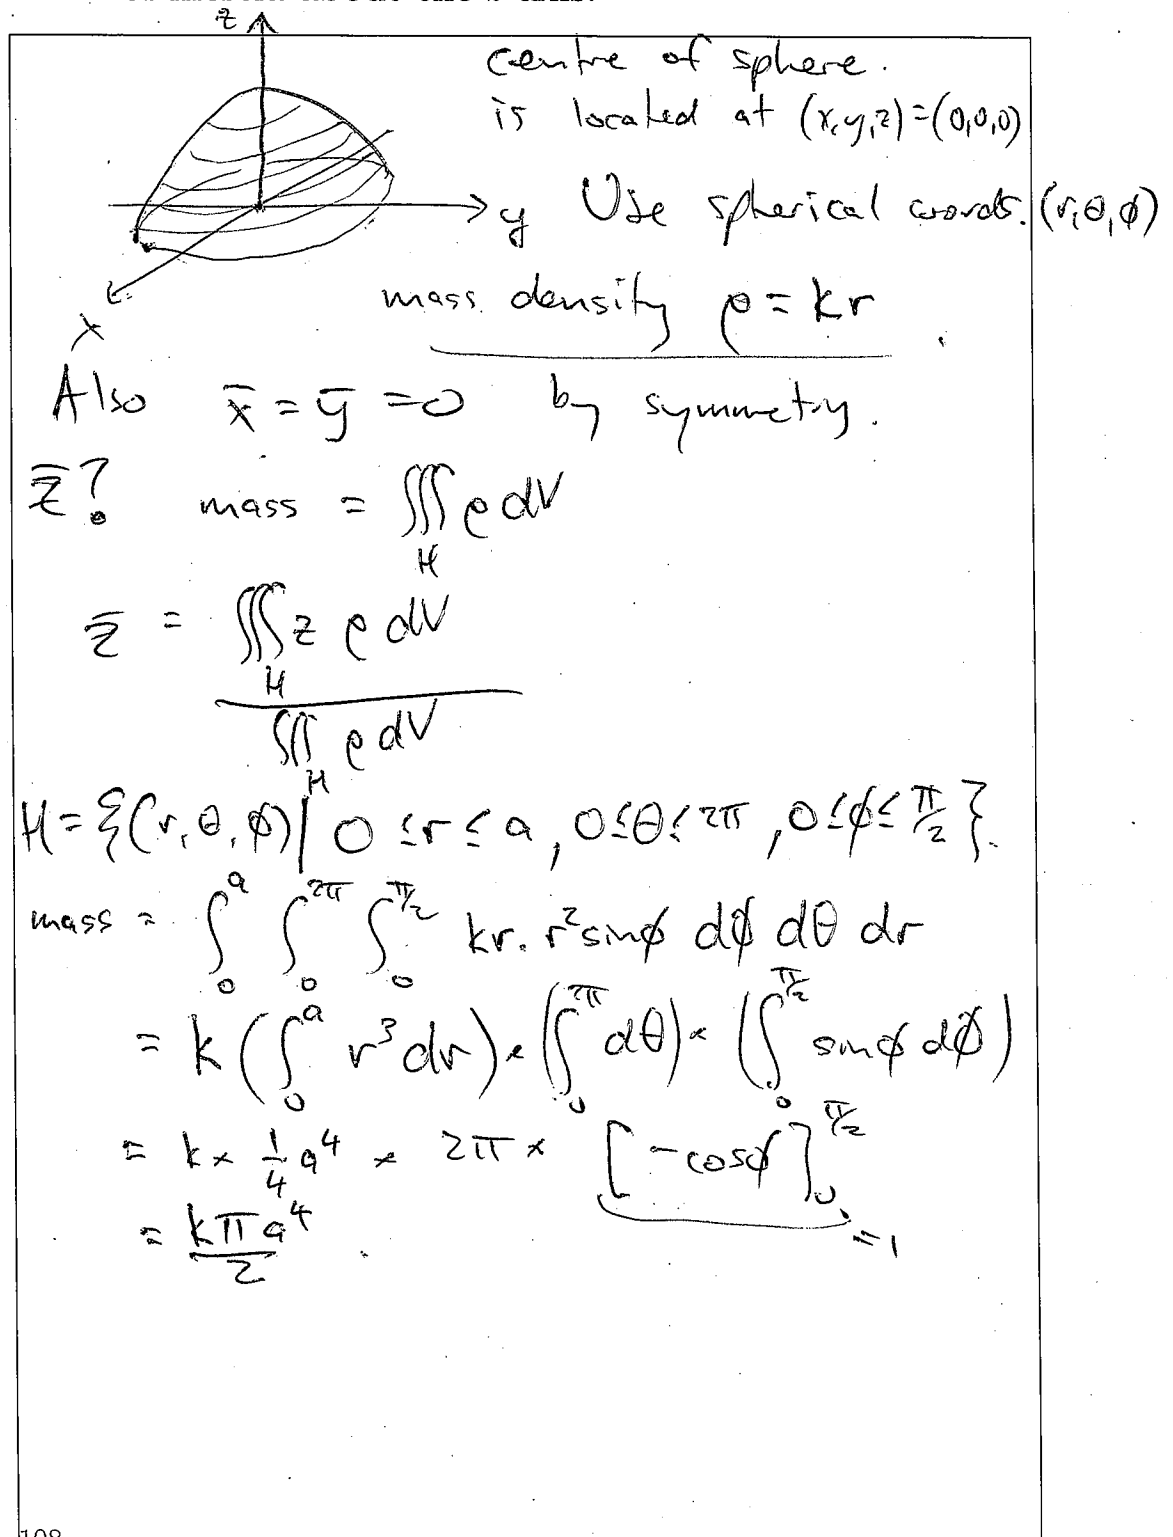 z
centre of sphere.
is located at (x,y,z)=(0,0,0)
y Use spherical coords. (r,θ,φ)
x
mass density ρ = kr
Also x̄ = ȳ = 0 by symmetry.
z̄? mass = ∭_H ρ dV
z̄ = ∭_H z ρ dV / ∭_H ρ dV
H = {(r,θ,φ) | 0 ≤ r ≤ a, 0 ≤ θ ≤ 2π, 0 ≤ φ ≤ π/2}.
mass = ∫_0^a ∫_0^{2π} ∫_0^{π/2} kr. r² sinφ dφ dθ dr
= k (∫_0^a r³ dr) × (∫_0^{2π} dθ) × (∫_0^{π/2} sinφ dφ)
= k × 1/4 a⁴ × 2π × [-cosφ]_0^{π/2}
=1
= kπa⁴/2
108